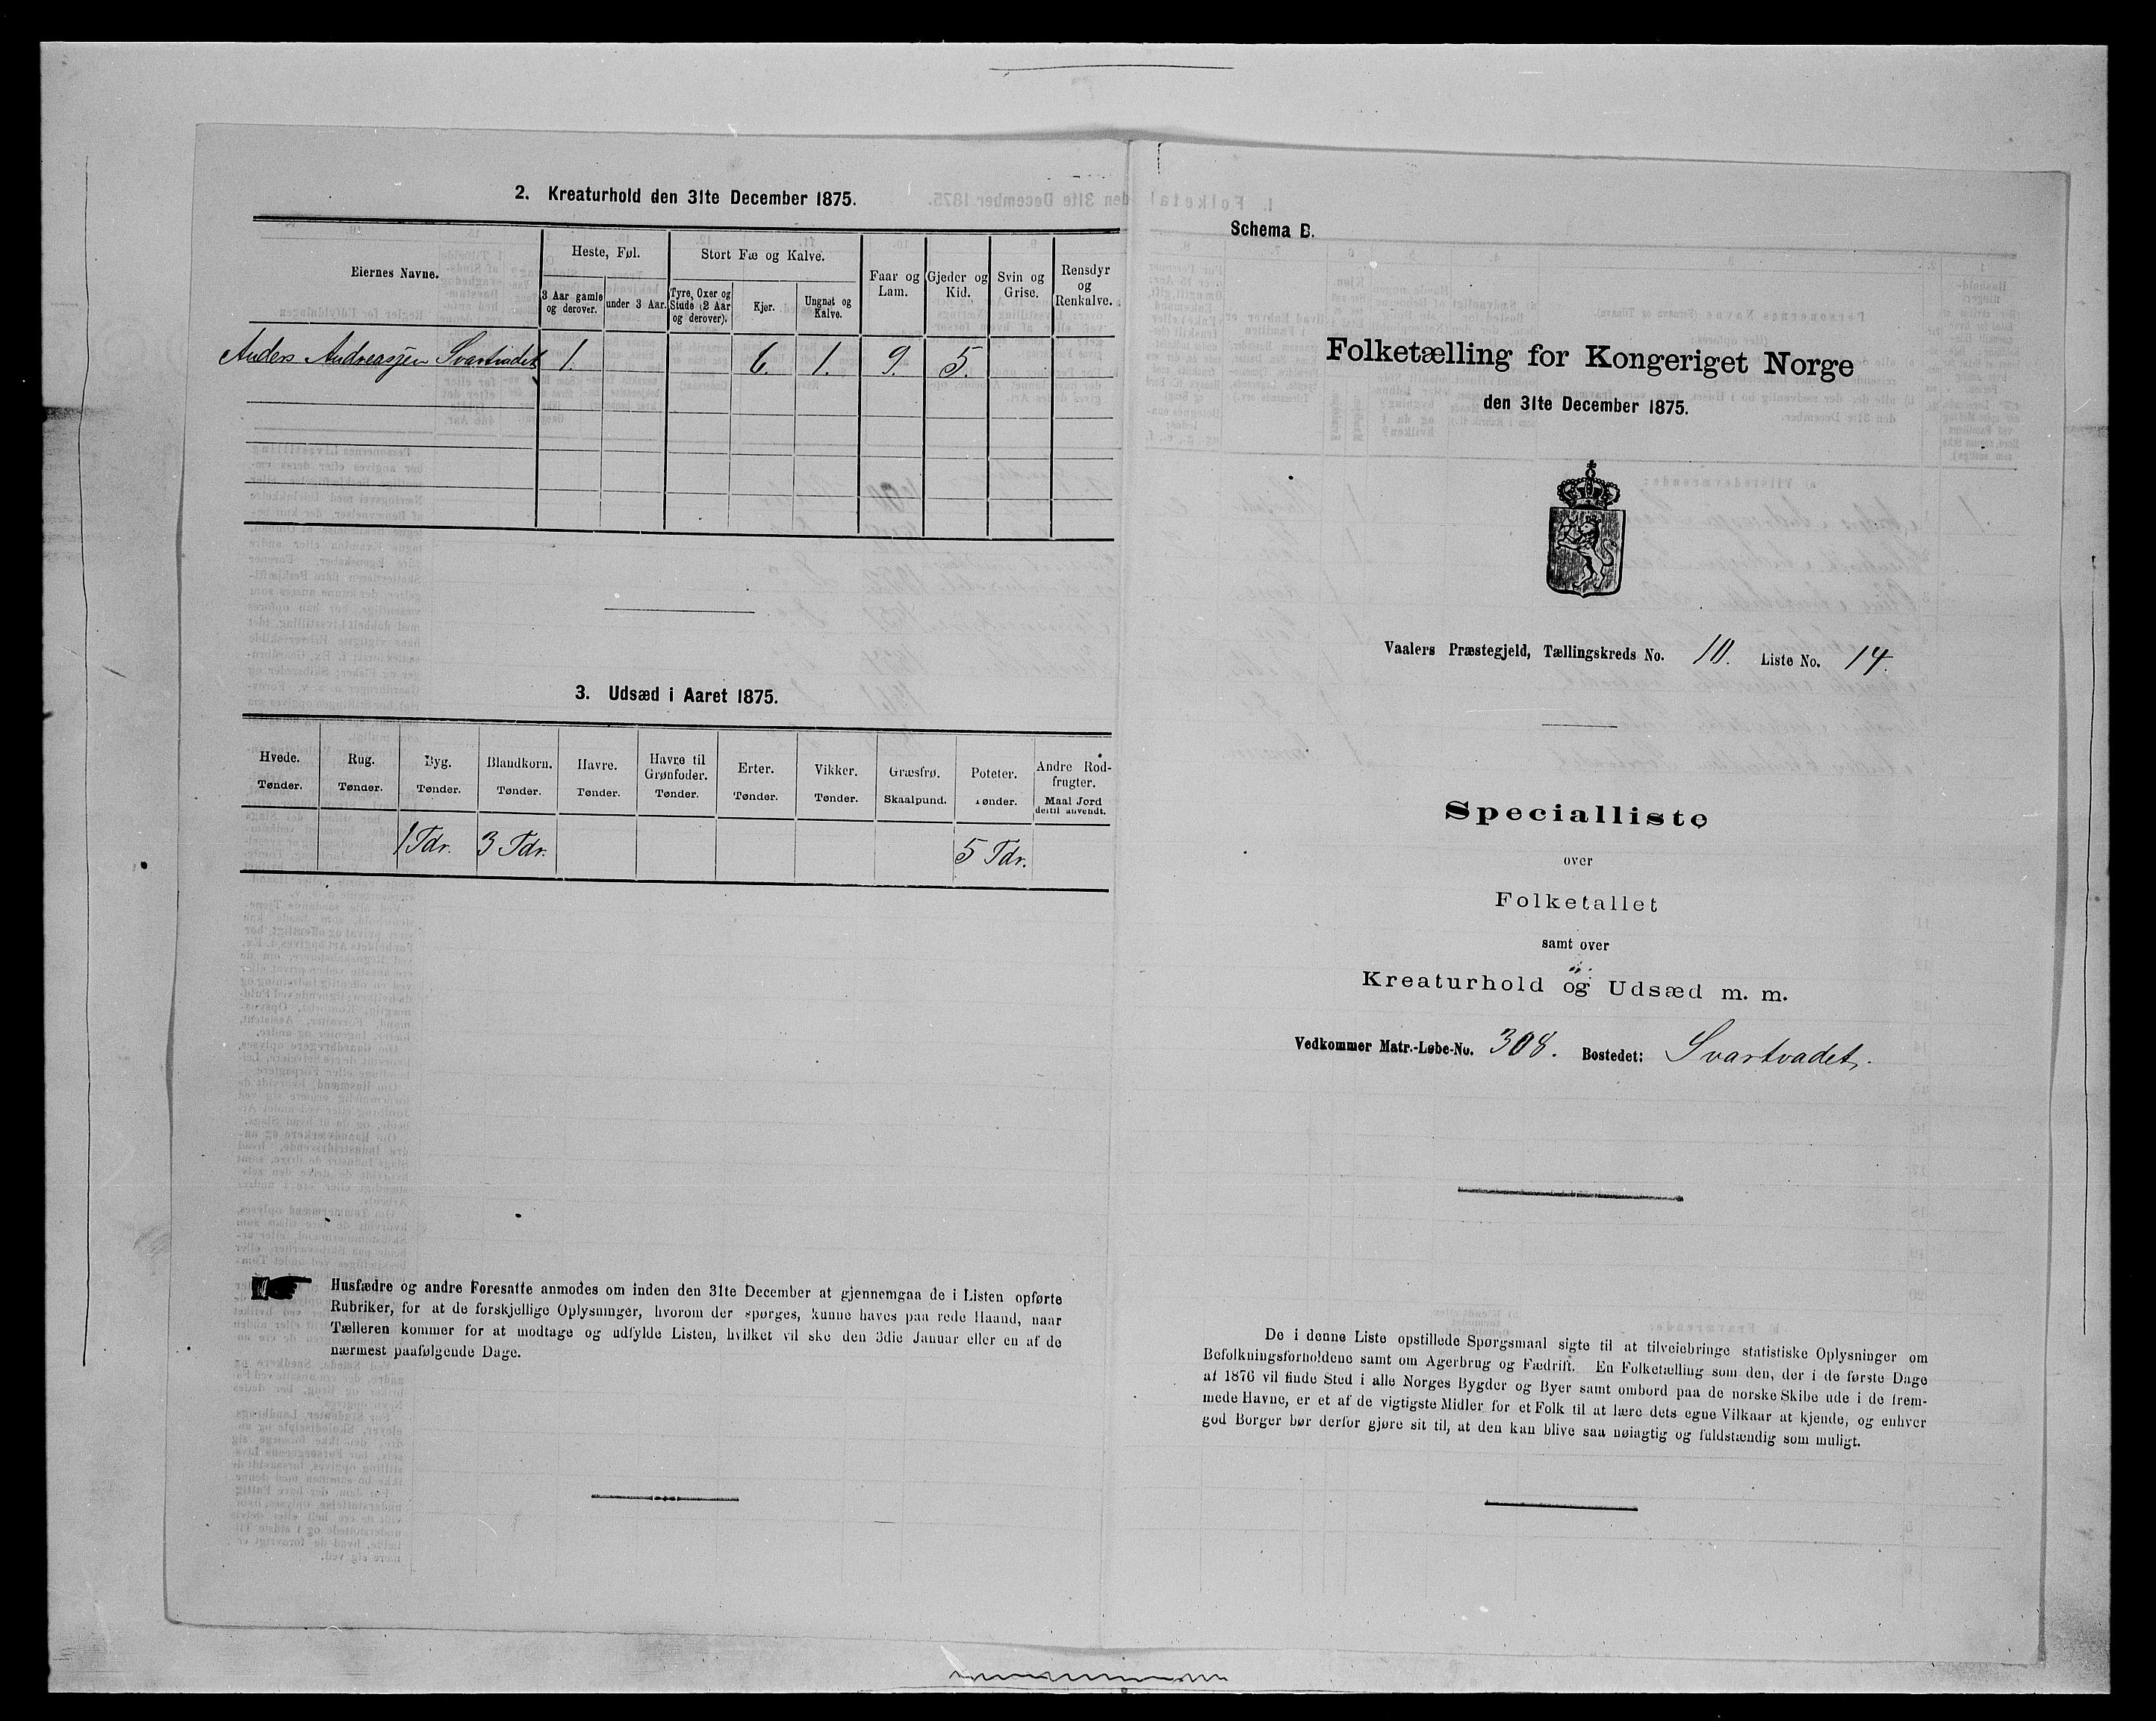 2. Kreaturhold den 31te December 1875.
Eiernes Navne.
Heste, Føl.
Stort Fæ og Kalve.
3 Aar gamle og derover.
under 3 Aar.
Tyre, Oxer og Stude (2 Aar og derover).
Kjer.
Ungnøt og Kalve.
Faar og Lam.
Gjeder og Kid.
Svin og Grise.
Rensdyr og Renkalve.
Anders Andreassen Svartvadet 1. 6. 1. 9. 5.
3. Udsæd i Aaret 1875.
Hvede. Rug. Byg. Blandkorn. Havre. Havre til Grønfoder. Erter. Vikker. Græsfrø. Poteter. Andre Rodfrugter.
Tønder. Tønder. Tønder. Tønder. Tønder. Tønder. Tønder. Tønder. Skaalpund. Tønder. Maal Jord dertil anvendt.
1 Tdr. 3 Tdr. 5 Tdr.
Husfædre og andre Foresatte anmodes om inden den 31te December at gjennemgaa de i Listen opførte
Rubriker, for at de forskjellige Oplysninger, hvorom der spørges, kunne haves paa rede Haand, naar
Tælleren kommer for at modtage og udfylde Listen, hvilket vil ske den 3die Januar eller en af de
nærmest paafølgende Dage.
Schema B.
Folketælling for Kongeriget Norge
den 31te December 1875.
Vaalers Præstegjeld, Tællingskreds No. 10. Liste No. 14.
Specialliste
over
Folketallet
samt over
Kreaturhold og Udsæd m. m.
Vedkommer Matr.-Løbe-No. 308. Bostedet: Svartvadet.
De i denne Liste opstillede Spørgsmaal sigte til at tilveiebringe statistiske Oplysninger om
Befolkningsforholdene samt om Agerbrug og Fædrift. En Folketælling som den, der i de første Dage
af 1876 vil finde Sted i alle Norges Bygder og Byer samt ombord paa de norske Skibe ude i de frem-
mede Havne, er et af de vigtigste Midler for et Folk til at lære dets egne Vilkaar at kjende, og enhver
god Borger bør derfor gjøre sit til, at den kan blive saa nøiagtig og fuldstændig som muligt.